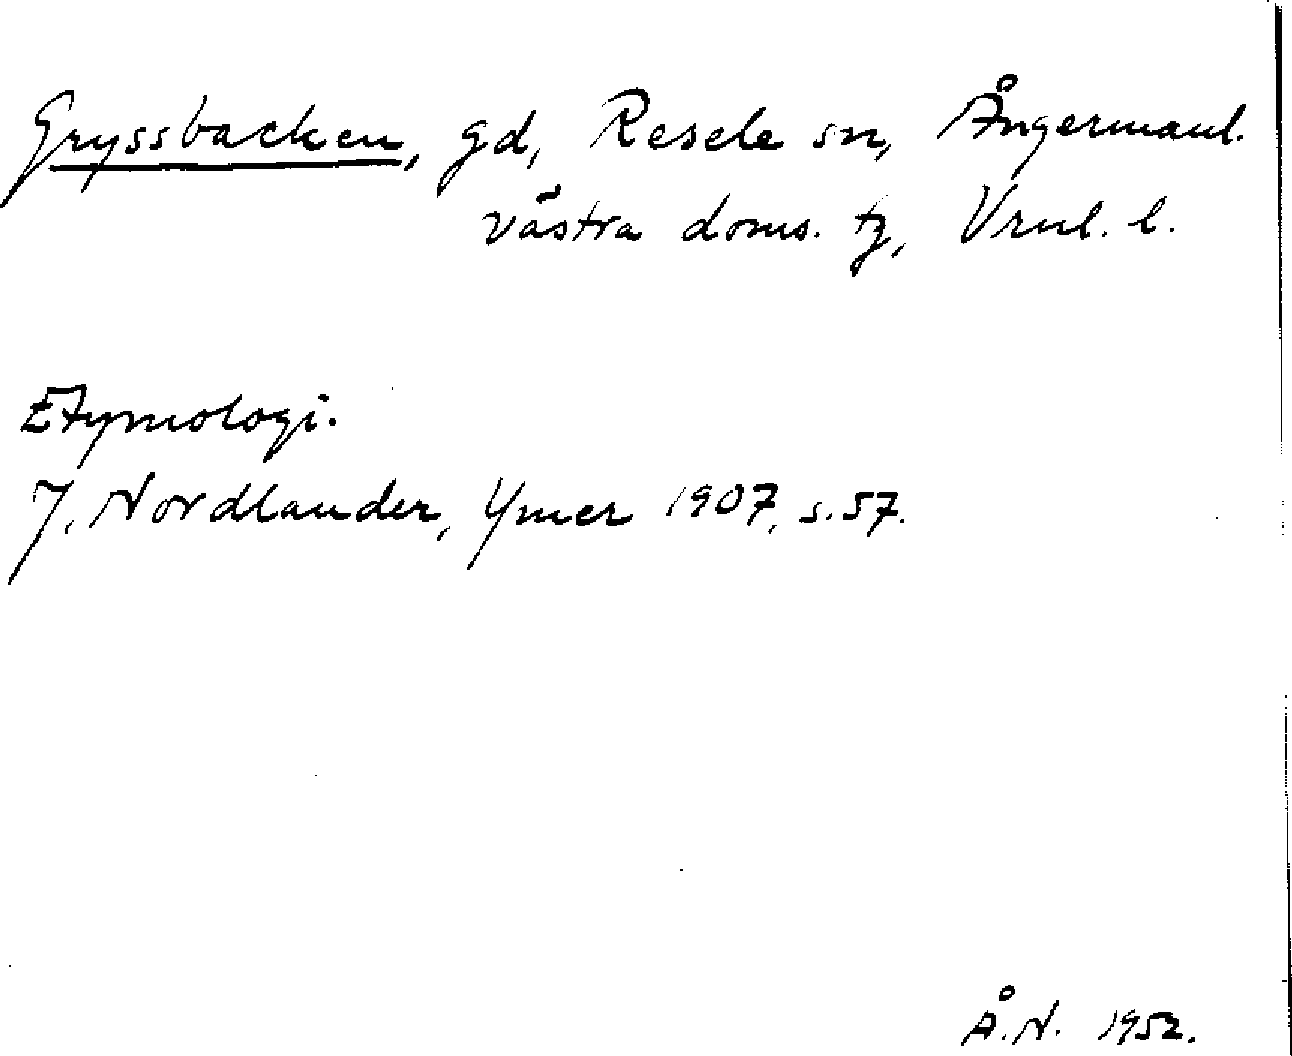 Gryssbacken, gd, Resele sn, Ångermanl.
västra doms. tg, Vrnl. l.
Etymologi.
J. Nordlander, Ymer 1907, s. 57.
Å.N. 1952.